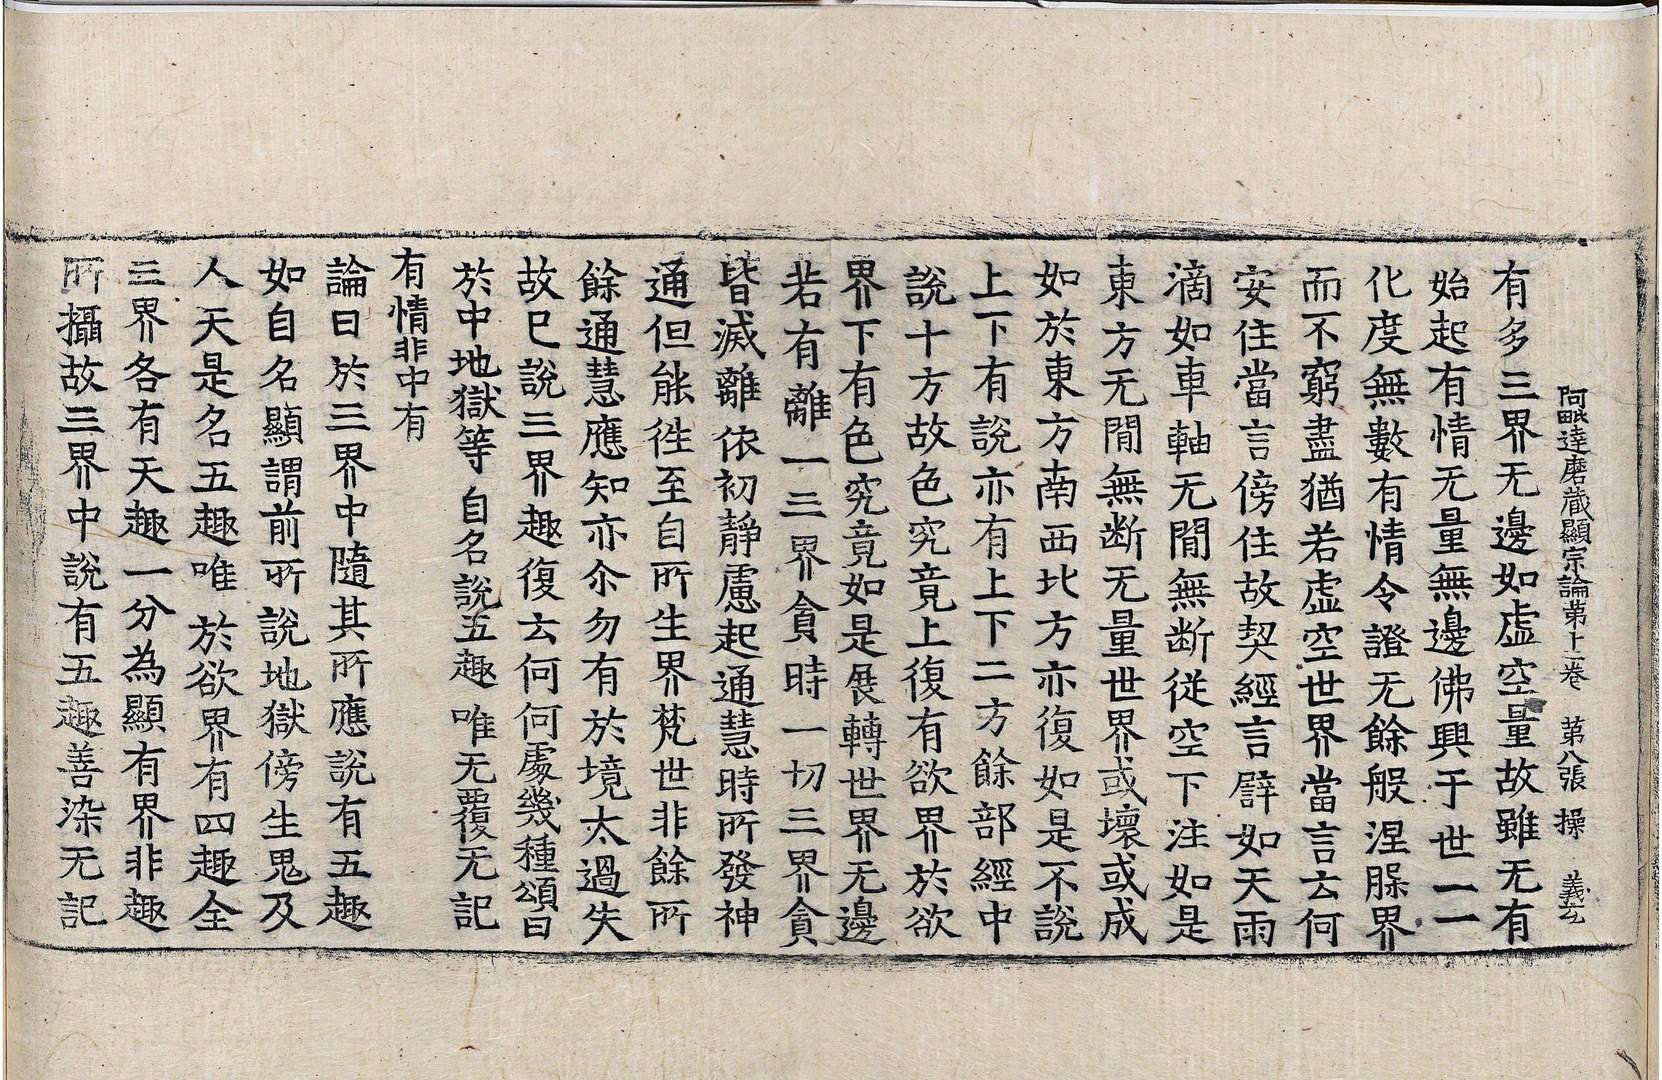 阿毗達磨藏顯宗論第十二卷 第八張 操 義玄
有多三界无邊如虛空量故雖无有
始起有情无量無邊佛興于世一一
化度無數有情令證无餘般涅槃界
而不窮盡猶若虛空世界當言云何
安住當言傍住故契經言譬如天雨
滴如車軸无間無断從空下注如是
東方无間無断无量世界或壞或成
如於東方南西北方亦復如是不說
上下有說亦有上下二方餘部經中
說十方故色究竟上復有欲界於欲
界下有色究竟如是展轉世界无邊
若有離一三界貪時一切三界貪
皆滅離依初靜慮起通慧時所發神
通但能徃至自所生界梵世非餘所
餘通慧應知亦尒勿有於境太過失
故已說三界趣復云何何處幾種頌曰
於中地獄等 自名說五趣 唯无覆无記
有情非中有
論曰於三界中隨其所應說有五趣
如自名顯謂前所說地獄傍生鬼及
人天是名五趣唯於欲界有四趣全
三界各有天趣一分為顯有界非趣
所攝故三界中說有五趣善染无記